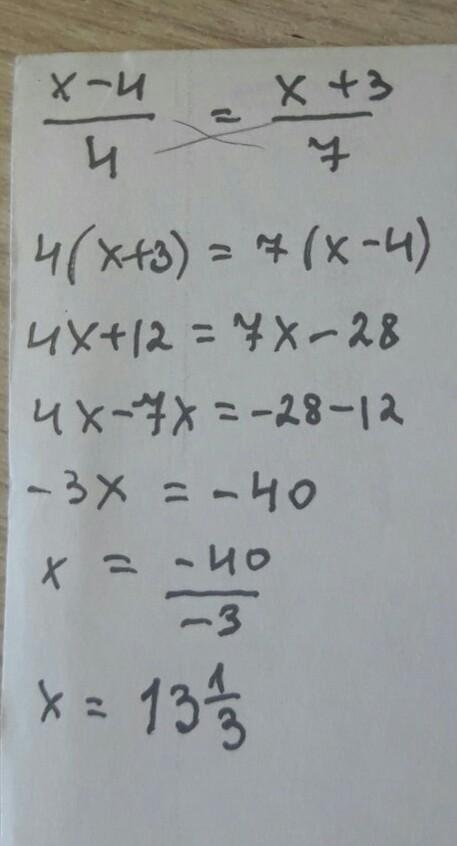 x-4/4 = x+3/7
4(x+3) = 7(x-4)
4x+12 = 7x-28
4x-7x = -28-12
-3x = -40
x = -40/-3
x = 13 1/3